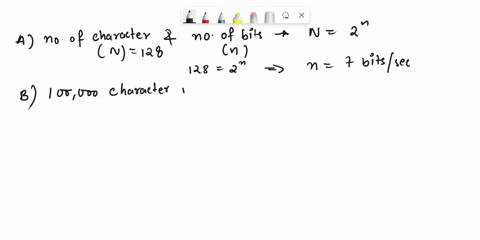 A) no. of character & no. of bits → N = 2ⁿ
(N) = 128 (n)
128 = 2ⁿ ⇒ n = 7 bits/sec
B) 100,000 character